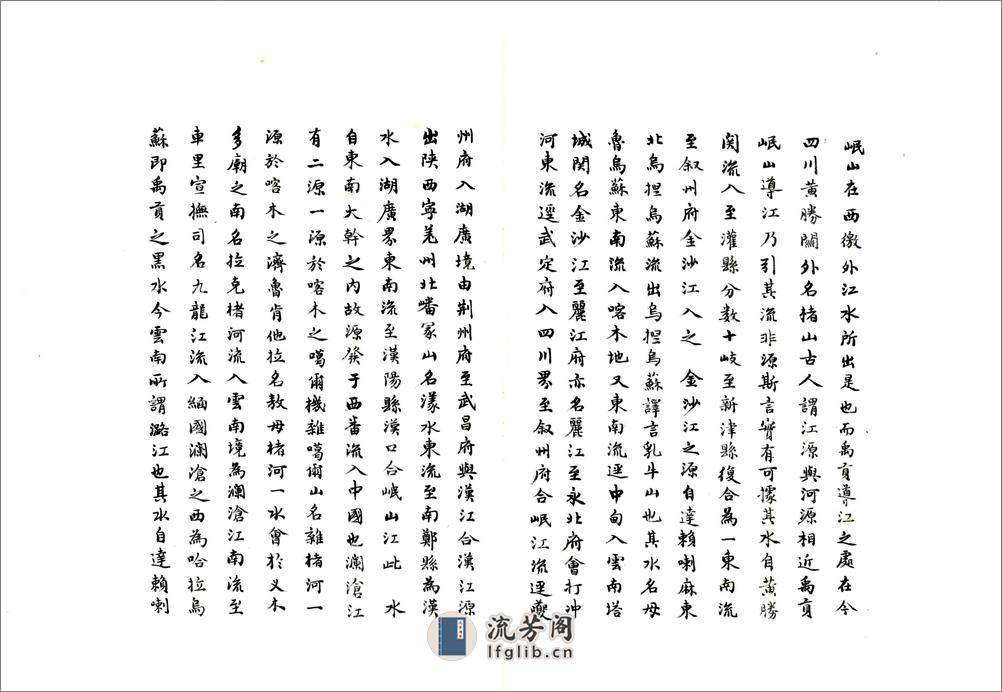 岷山在西徼外江水所出是也而禹貢導江之處在今
四川黄勝關外名捨山古人謂江源與河源相近禹貢
岷山導江乃引其流非源斯言實有可據其水自黄勝
関流入至灌縣分数十岐至新津縣復合為一東南流
至叙州府金沙江入之 金沙江之源自達賴喇麻東
北烏捏烏蘇流出烏捏烏蘇譯言乳牛山也其水名毋
魯烏蘇東南流入喀木地又東南流逕中甸入雲南塔
城関名金沙江至麗江府亦名麗江至永北府會打冲
河東流逕武定府入四川界至叙州府合岷江流逕夔
州府入湖廣境由荆州府至武昌府與漢江合漢江源
出陕西寧羌州北嶓冢山名漾水東流至南鄭縣為漢
水入湖廣界東南流至漢陽縣漢口合岷山江此 水
自東南大幹之内故源發于西番流入中國也瀾滄江
有二源一源於喀木之噶爾機雜噶爾山名雜楮河一
源於喀木之濟魯肯他拉名敖母楮河一水會於义木
多廟之南名拉克楮河流入雲南境為瀾滄江南流至
車里宣撫司名九龍江流入緬國瀾滄之西為哈拉烏
蘇即禹貢之黑水今雲南所謂潞江也其水自達賴喇
流芳阁
lfglib.cn